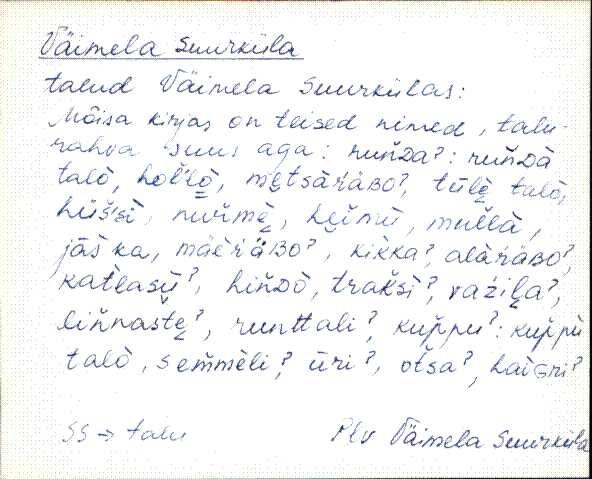 Väimela Suurküla
talud Väimela Suurkülas:
Mõisa kirjas on teised nimed, talu-
rahva suus aga: ruňDa?: ruňDà
talò, hoľľò, mę̀tsàŕäBO?, tülè talò,
hüšìsì, nuřmè, hęimù, mullà,
jàš ka, mäèŕäBO?, kìkka?, alàŕäBO?,
katłasù?, hiňdò, trakšì?, važiļa?,
liňnastę?, runttali?, kuppu?: kuppù
talò, semmèli?, ūri?, otsa?, haìGri?
SS → talu
Plv Väimela Suurküla